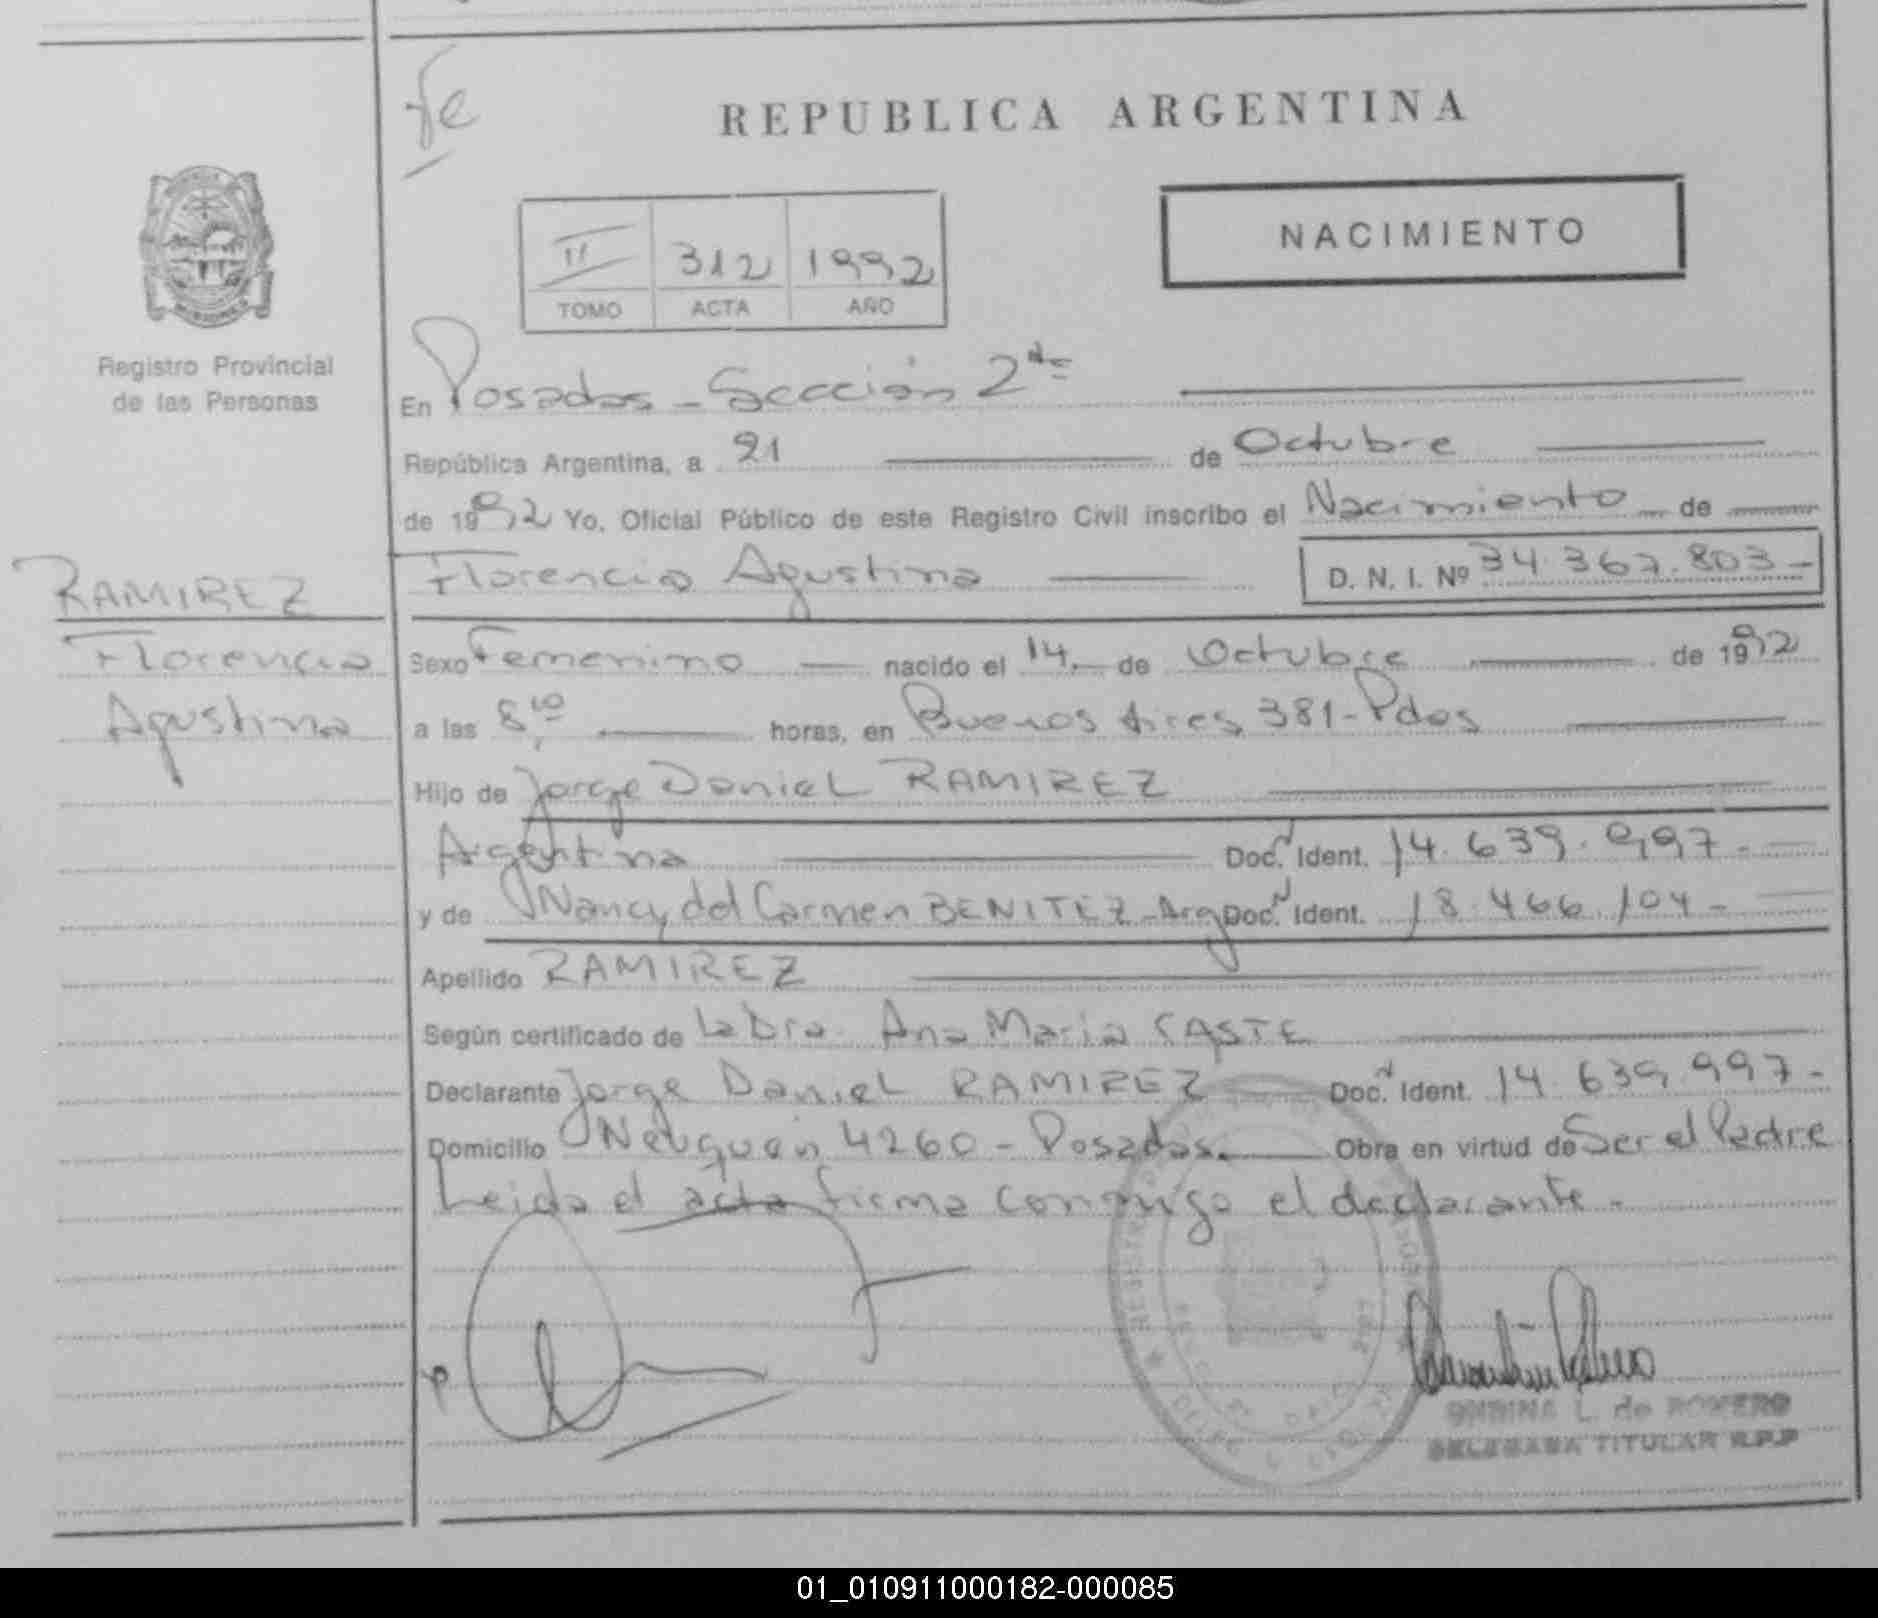 Fe
REPUBLICA ARGENTINA
NACIMIENTO
II 312 1992
TOMO ACTA AÑO
Registro Provincial
de las Personas
En Posadas - Sección 2da
República Argentina, a 21 de Octubre
de 1992 Yo, Oficial Público de este Registro Civil inscribo el Nacimiento de
Florencia Agustina D. N. I. Nº 34.367.803-
RAMIREZ
Florencia
Agustina
Sexo Femenino nacido el 14 de Octubre de 1992
a las 8,10 horas, en Buenos Aires 381 - Pdas
Hijo de Jorge Daniel RAMIREZ
Argentina Doc. Ident. 14.639.997-
y de Nancy del Carmen BENITEZ - Arg Doc. Ident. 18.466.104-
Apellido RAMIREZ
Según certificado de La Dra. Ana Maria CASTE
Declarante Jorge Daniel RAMIREZ Doc. Ident. 14.639.997-
Domicilio Neuquén 4260 - Posadas. Obra en virtud de Ser el Padre
Leida el acta firma conmigo el declarante-
L. de ROMERO
DELEGADA TITULAR R.P.P
01_010911000182-000085